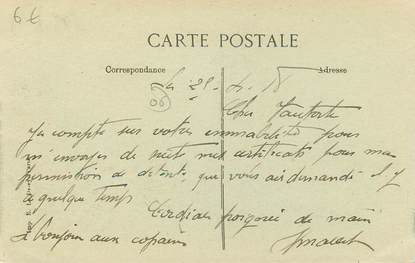 6€
CARTE POSTALE
Correspondance
Adresse
Le 25
Cher
Je compte sur votre amabilité pour
m'envoyer de suite mes certificats pour ma
permission de détente que vous ai demandé il y
a quelque temps
Cordiale poignée de main
Le bonjour aux copains